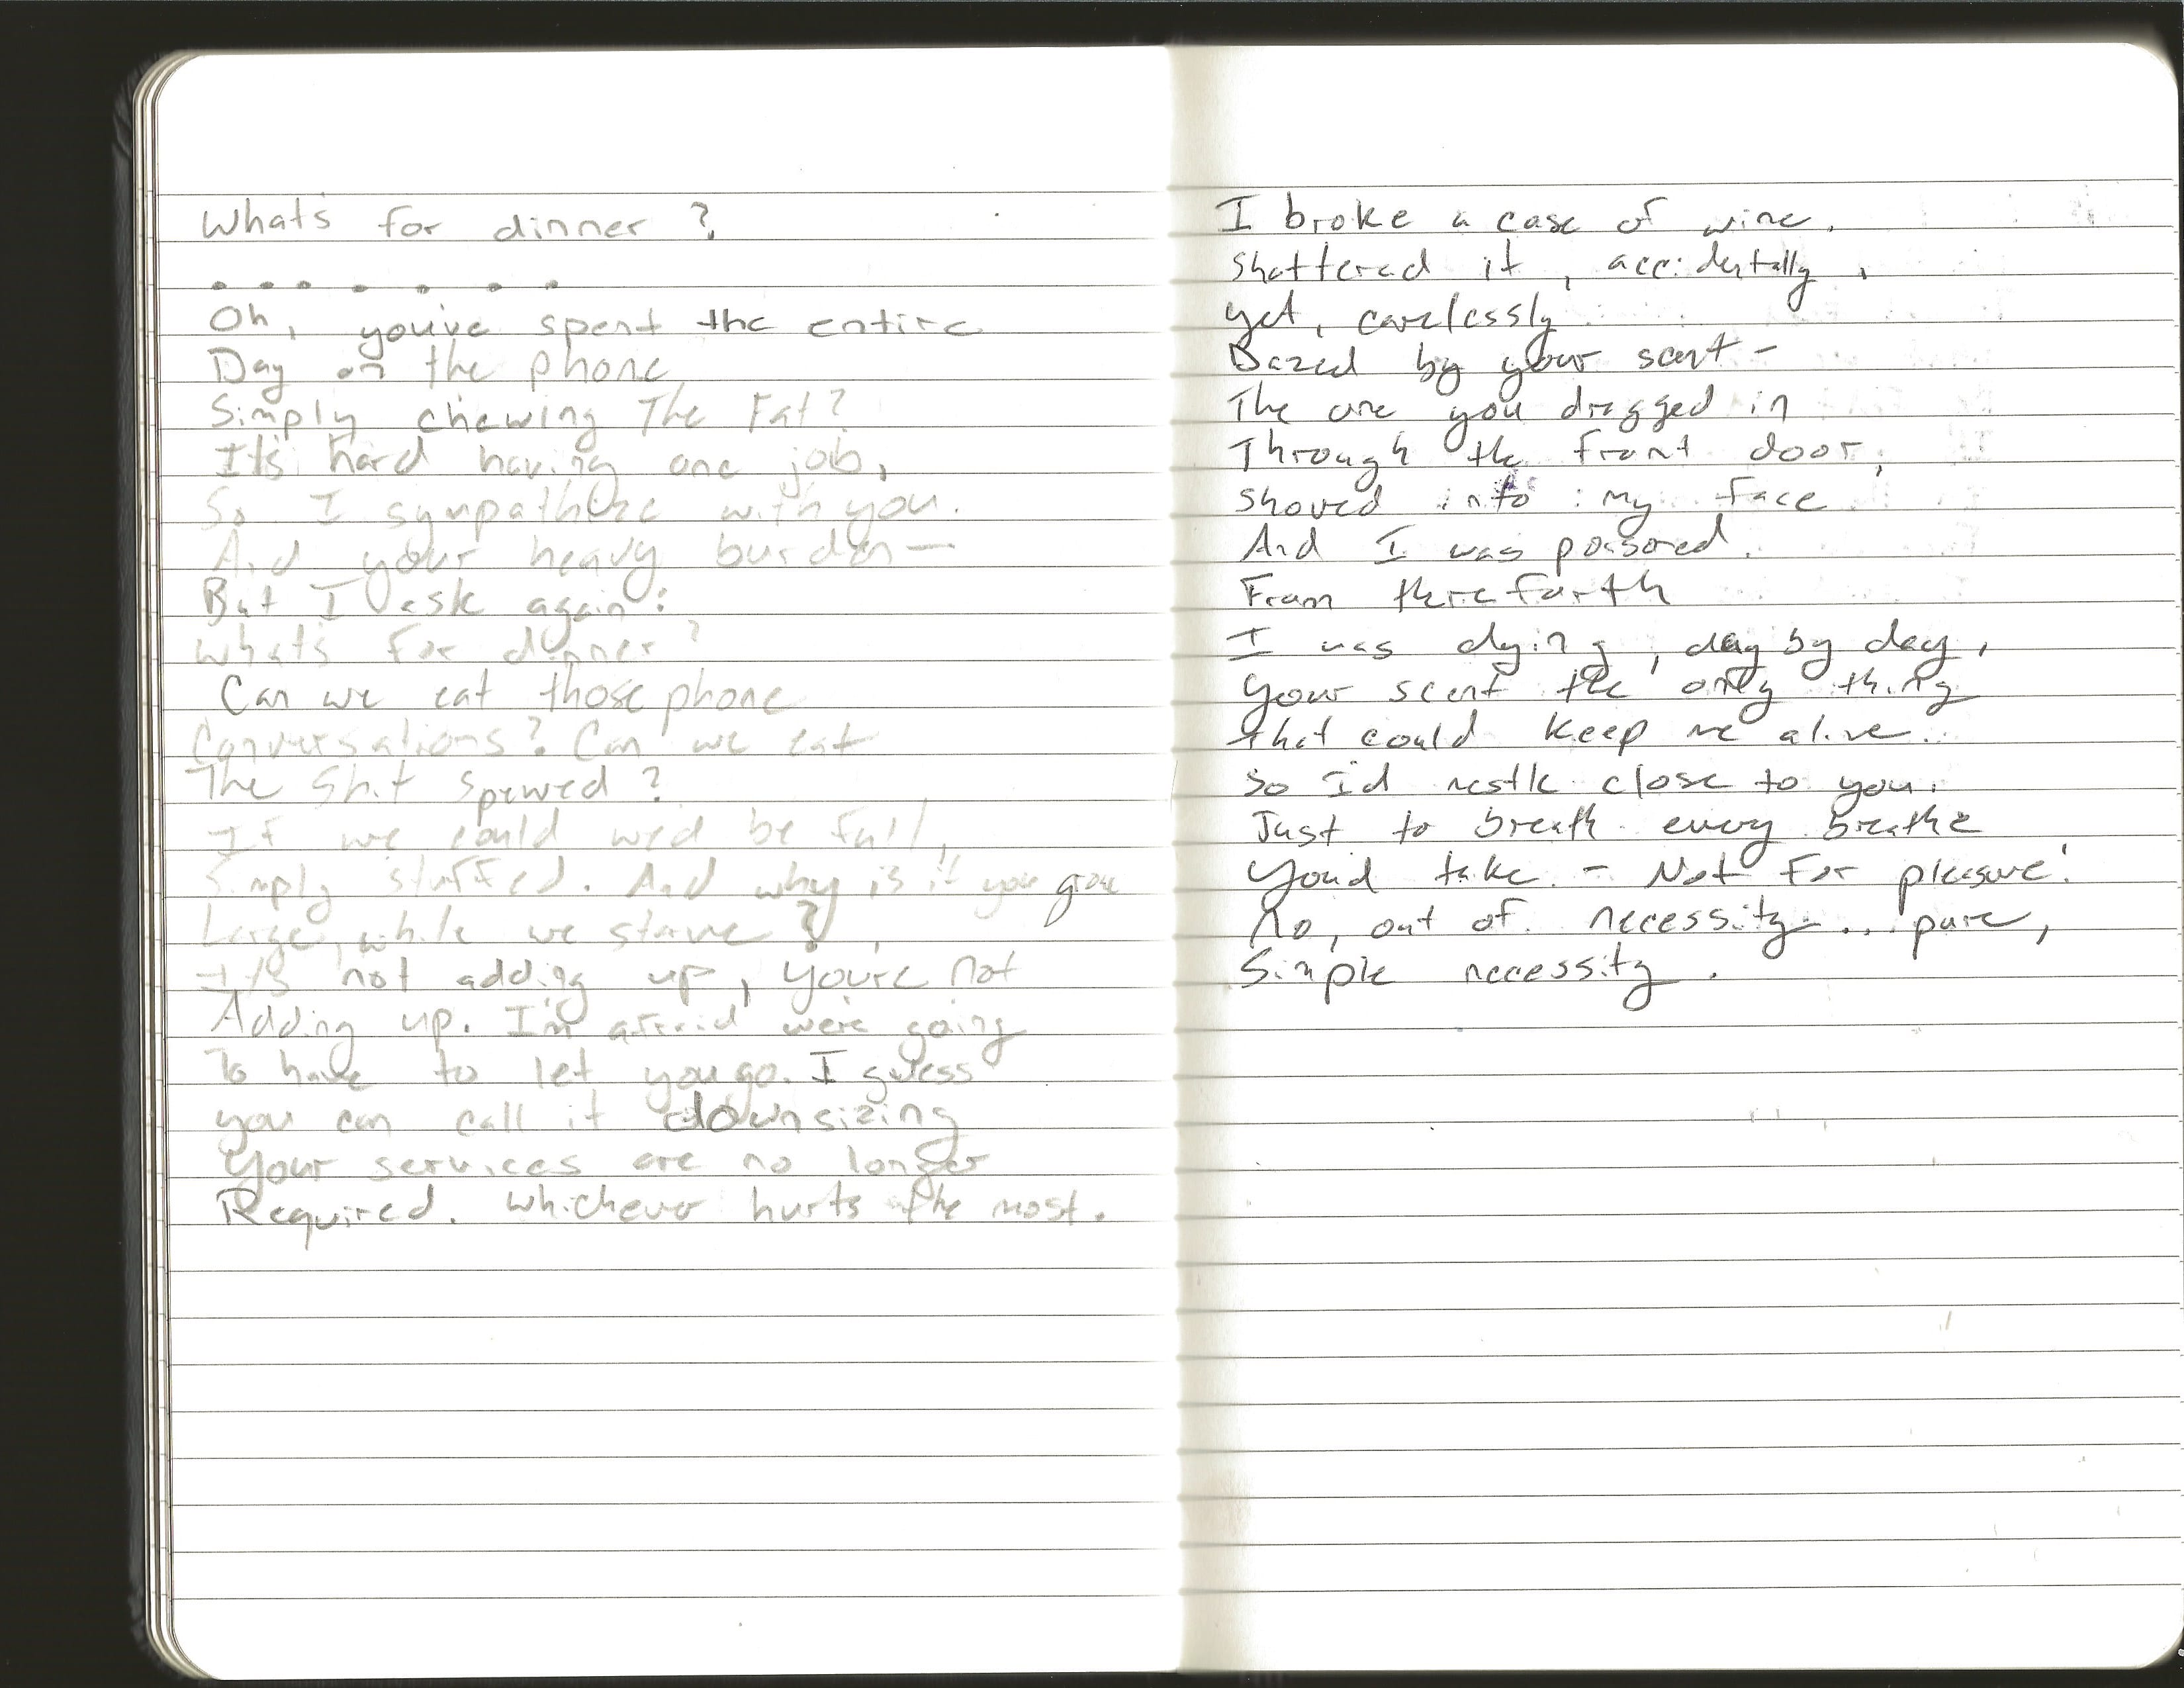 Whats for dinner?
. . . . . . .
Oh, youve spent the entire
Day on the phone
Simply chewing The Fat?
Its hard having one job,
So I sympathize with you.
And your heavy burden—
But I ask again:
Whats For dinner?
Can we eat those phone
Conversations? Can we eat
The Shit spewed?
If we could wed be full,
Simply stuffed. And why is it you grow
Large, while we starve?
It's not adding up, youre not
Adding up. I'm afraid were going
To have to let you go. I guess
you can call it downsizing
Your services are no longer
Required. Whichever hurts the most.
I broke a case of wine.
Shattered it, accidentally,
yet, carelessly
Dazed by your scent-
The one you dragged in
Through the front door,
shoved into my face
And I was poisoned.
From there forth
I was dying, day by day,
Your scent the only thing
that could keep me alive.
So I'd nestle close to you.
Just to breath every breathe
Youd take - Not for pleasure!
No, out of necessity... pure,
Simple necessity.